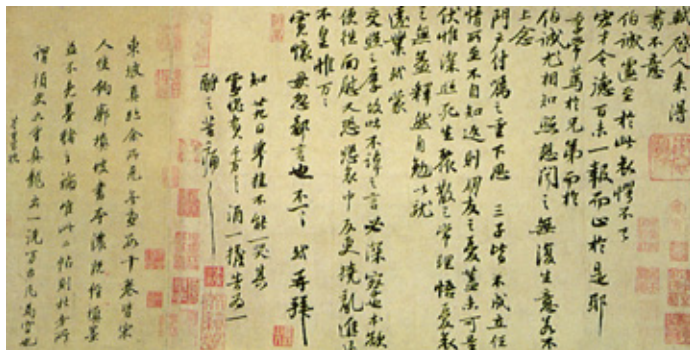 軾啓人来得
書不意
伯誠遽至於此哀愕不已
宏才令德百未一報而止於是耶
季常篤於兄弟而於
伯誠尤相知照想聞之無復生意若不
上念
門戶付囑之重下思三子皆不成立任
情所至不自知返則朋友之憂蓋未可量
伏惟深照死生聚散之常理悟憂哀
之無益釋然自勉以就
遠業軾蒙
交照之厚故吐不諱之言必深察也本欲
便往面慰又恐悲哀中反更撓亂進退
不皇惟万万
寬懷毋忽鄙言也不一一軾再拜
知廿九日舉挂不能一哭其
靈愧負千万千万酒一擔告為一
酹之苦痛苦痛
東坡真跡余所見無慮數十卷皆宋
人雙鉤廓填坡書本濃既經填墨
益不免墨豬之論唯此二帖則杜老所
謂須臾九重真龍出一洗萬古凡馬空也
董其昌題